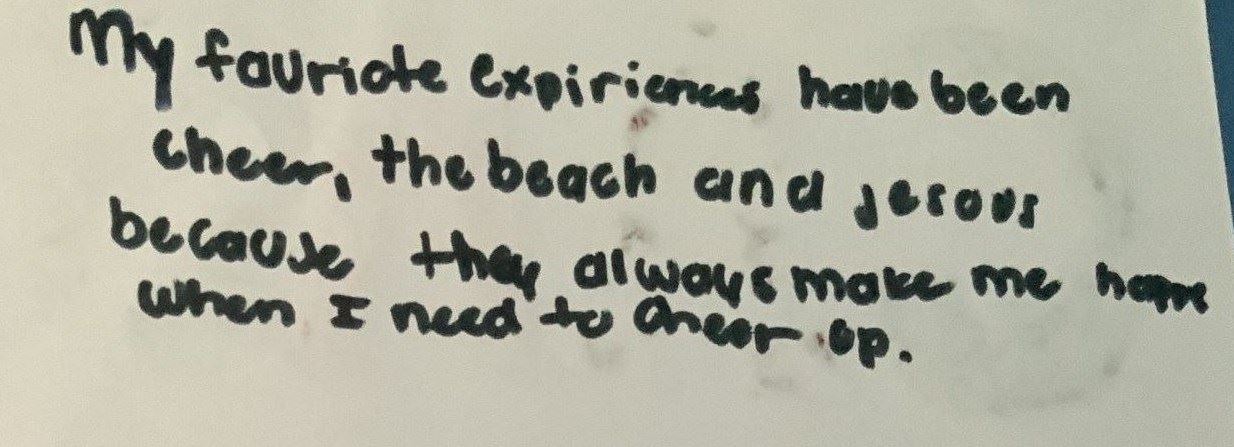 My fauriote expiriences have been
cheer, the beach and jesous
because they always make me
when I need to cheer up.